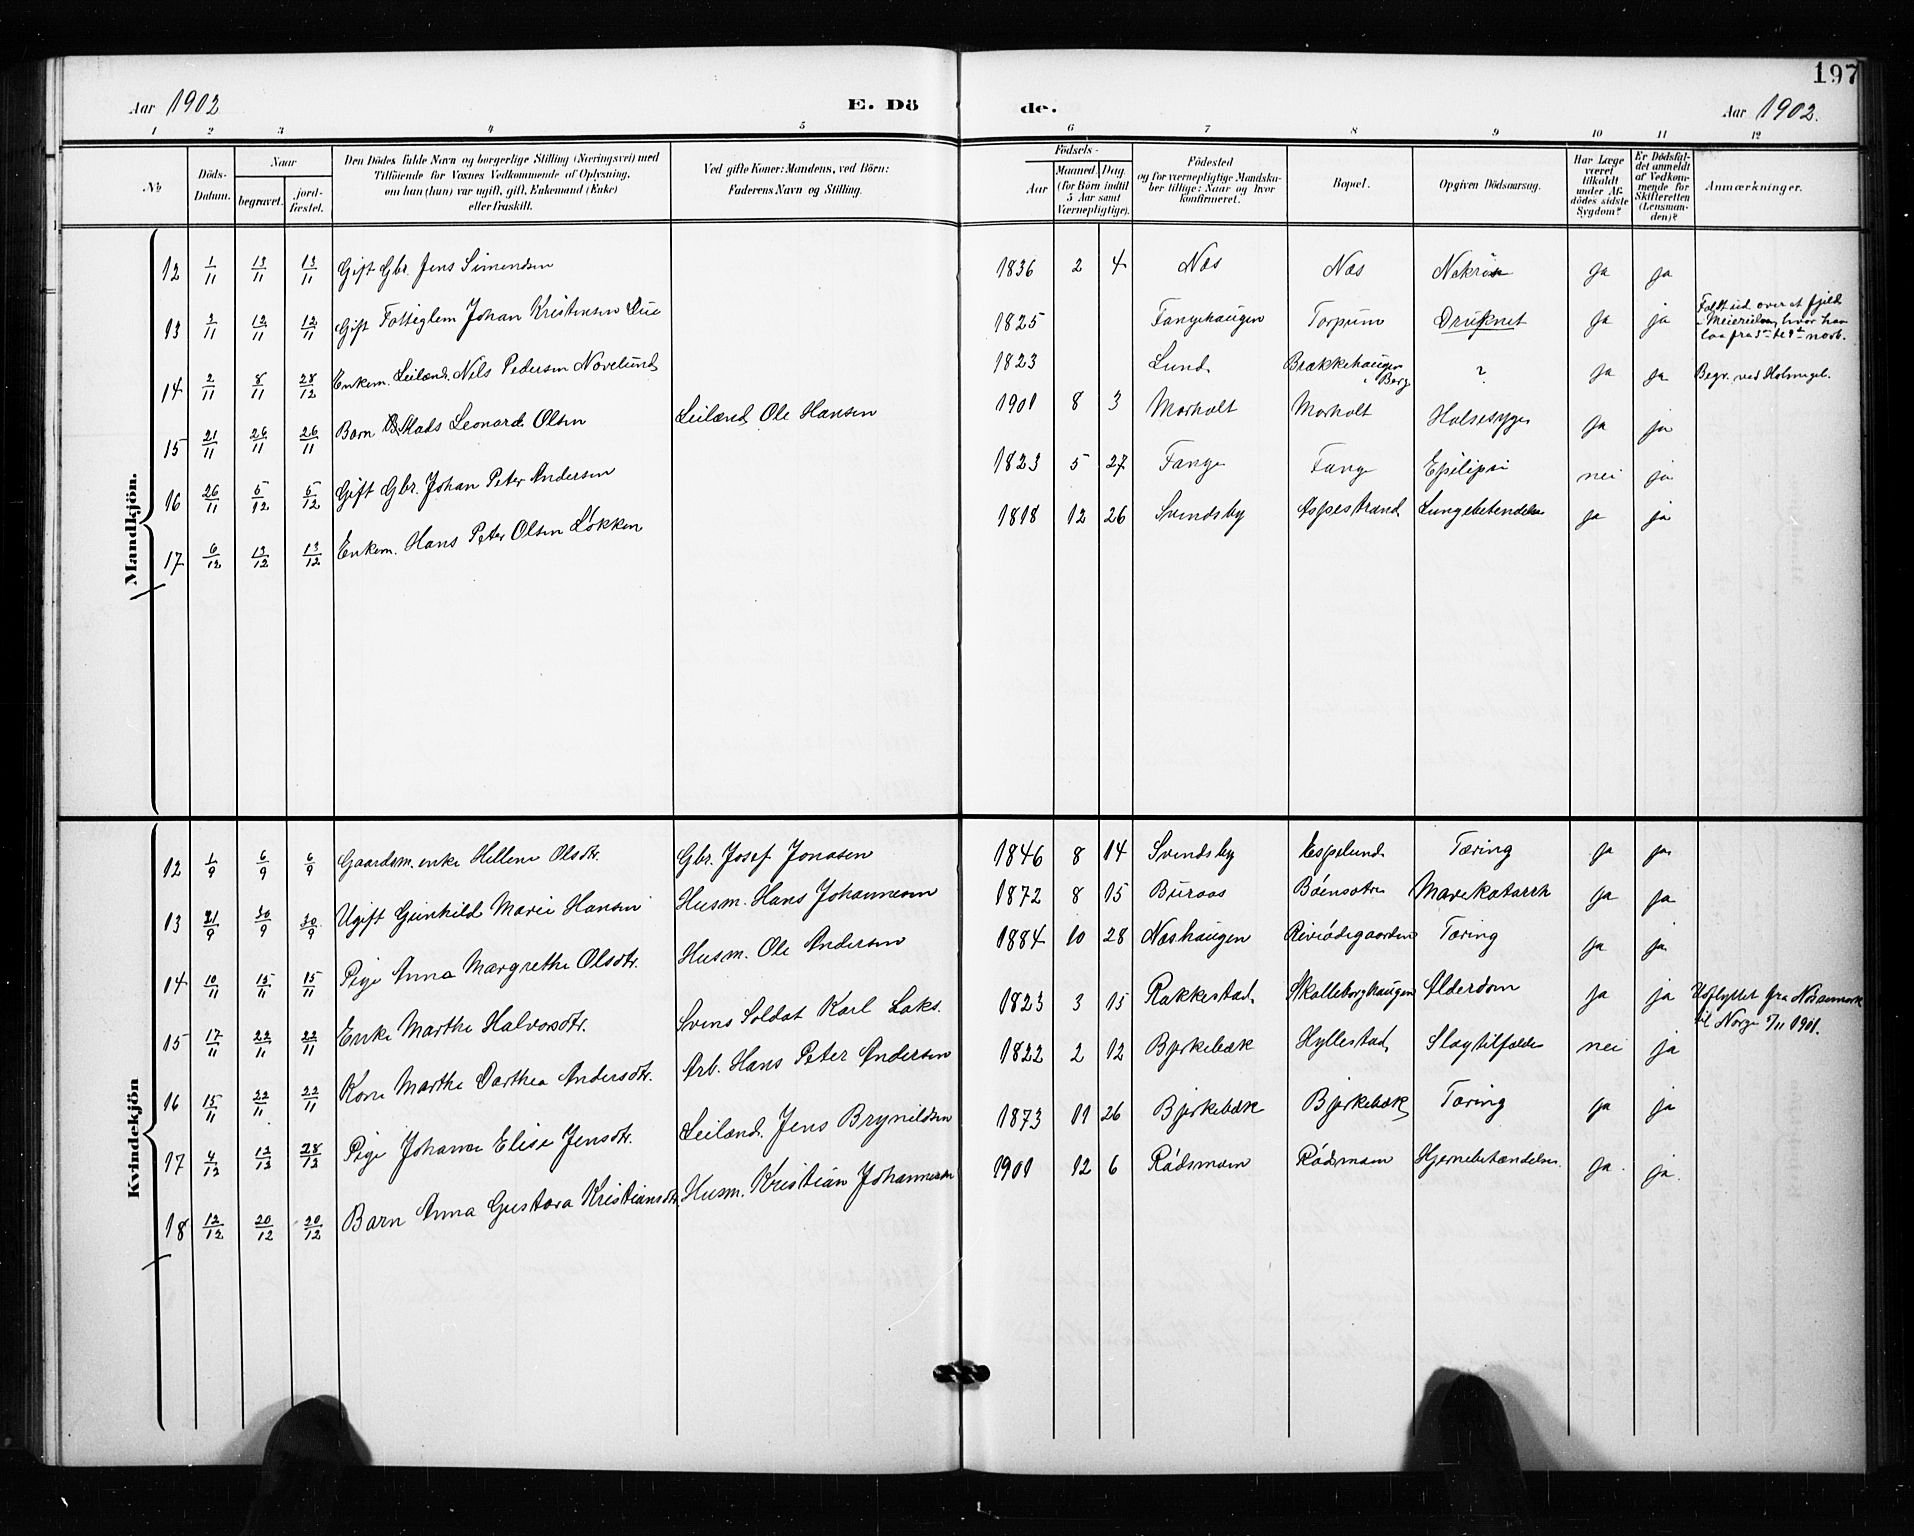 197
Aar 1902 E. Dö de. Aar 1902.
1 2 3 4 5 6 7 8 9 10 11 12
No Döds-Datum. Naar begravet. jordfæstet. Den Dödes fulde Navn og borgerlige Stilling (Næringsvei) med Tilföiende for Voxnes Vedkommende af Oplysning, om han (hun) var ugift, gift, Enkemand (Enke) eller fraskilt. Ved gifte Koner: Mandens, ved Börn: Faderens Navn og Stilling. Födsels- Aar Maaned. Dag. (for Börn indtil 5 Aar samt Værnepligtige). Födested og for værnepligtige Mandskaber tillige: Naar og hvor konfirmeret. Bopæl. Opgiven Dödsaarsag. Har Læge været tilkaldt under Afdödes sidste Sygdom? Er Dödsfaldet anmeldt af Vedkommende for Skifteretten (Lensmanden)? Anmærkninger.
Mandkjön.
12 1/11 13/11 13/11 Gift Gbr. Jens Simensen 1836 2 4 Næs Næs ja ja
13 3/11 12/11 12/11 Gift Fattiglem Johan Kristensen Due 1825 Fangehaugen Torpum Druknet ja ja Faldt ud over et fjeld
14 2/11 8/11 28/12 Enkem. Leilænd. Nels Pedersen Novelund 1823 Lund Brækkehaugen i Berg ? ja ja Begr. ved
15 21/11 26/11 26/11 Barn Mads Leonard Olsen Leilænd Ole Hansen 1901 8 3 Morholt Morholt Halsesyge ja ja
16 26/11 5/12 5/12 Gift Gbr. Johan Peter Andersen 1823 5 27 Fange Fange Epilipsi nei ja
17 6/12 13/12 13/12 Enkem. Hans Peter Olsen Løkken 1818 12 26 Svendsby Aspestrand Lungebetendelse ja ja
Kvindekjön
12 1/9 6/9 6/9 Gaardm. enke Hellene Olsdtr. Gbr. Josef Jonasen 1846 8 14 Svendsby Espelund Tæring ja ja
13 21/9 30/9 30/9 Ugift Gunhild Marie Hansen Husm. Hans Johannesen 1872 8 15 Buraas Bøensætre Mavekatarrh ja ja
14 10/11 15/11 15/11 Pige Anna Margrethe Olsdtr. Husm. Ole Andersen 1884 10 28 Næshaugen Tæring ja ja
15 17/11 22/11 22/11 Enke Marthe Halvorsdtr. Svensk Soldat Karl Laks. 1823 3 15 Rakkestad Skalleborghaugen Alderdom ja ja Udflyttet fra
til Norge 5/11 1901.
16 15/11 22/11 22/11 Kone Marthe Dorthea Andersdtr. Arb. Hans Peter Andersen 1822 2 12 Bjørkebæk Hyllestad Slagtilfælde nei ja
17 4/12 12/12 28/12 Pige Johanne Elise Jensdtr. Leilænd. Jens Brynildsen 1873 11 26 Bjørkebæk Bjørkebæk Tæring ja ja
18 12/12 20/12 20/12 Barn Anna Gustava Kristiansdtr. Husm. Kristian Johannesen 1901 12 6 Rødsmoen Rødsmoen Hjernebetændelse. ja. ja.